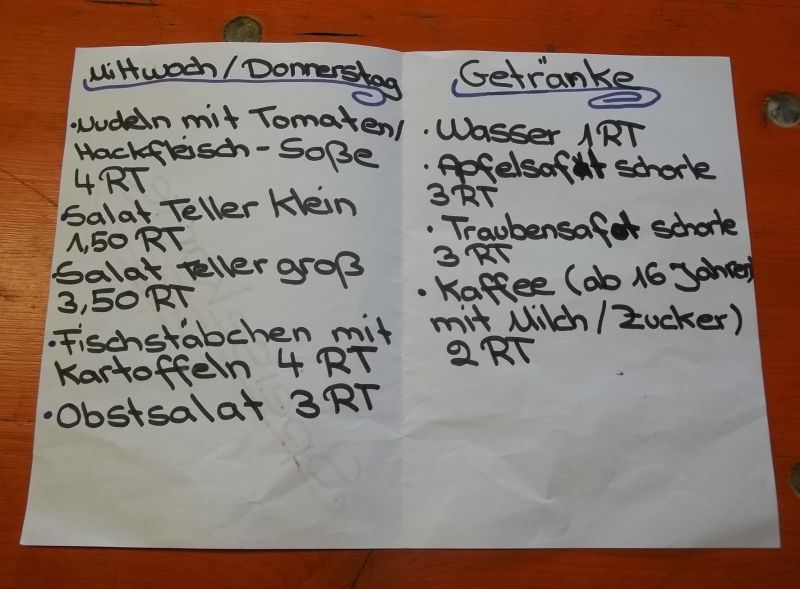 Mittwoch / Donnerstag
• Nudeln mit Tomaten/
Hackfleisch - Soße
4 RT
• Salat Teller Klein
1,50 RT
• Salat Teller groß
3,50 RT
• Fischstäbchen mit
Kartoffeln 4 RT
• Obstsalat 3 RT
Getränke
• Wasser 1 RT
• Apfelsaft schorle
3 RT
• Traubensaft schorle
3 RT
• Kaffee (ab 16 Jahren)
mit Milch / Zucker)
2 RT